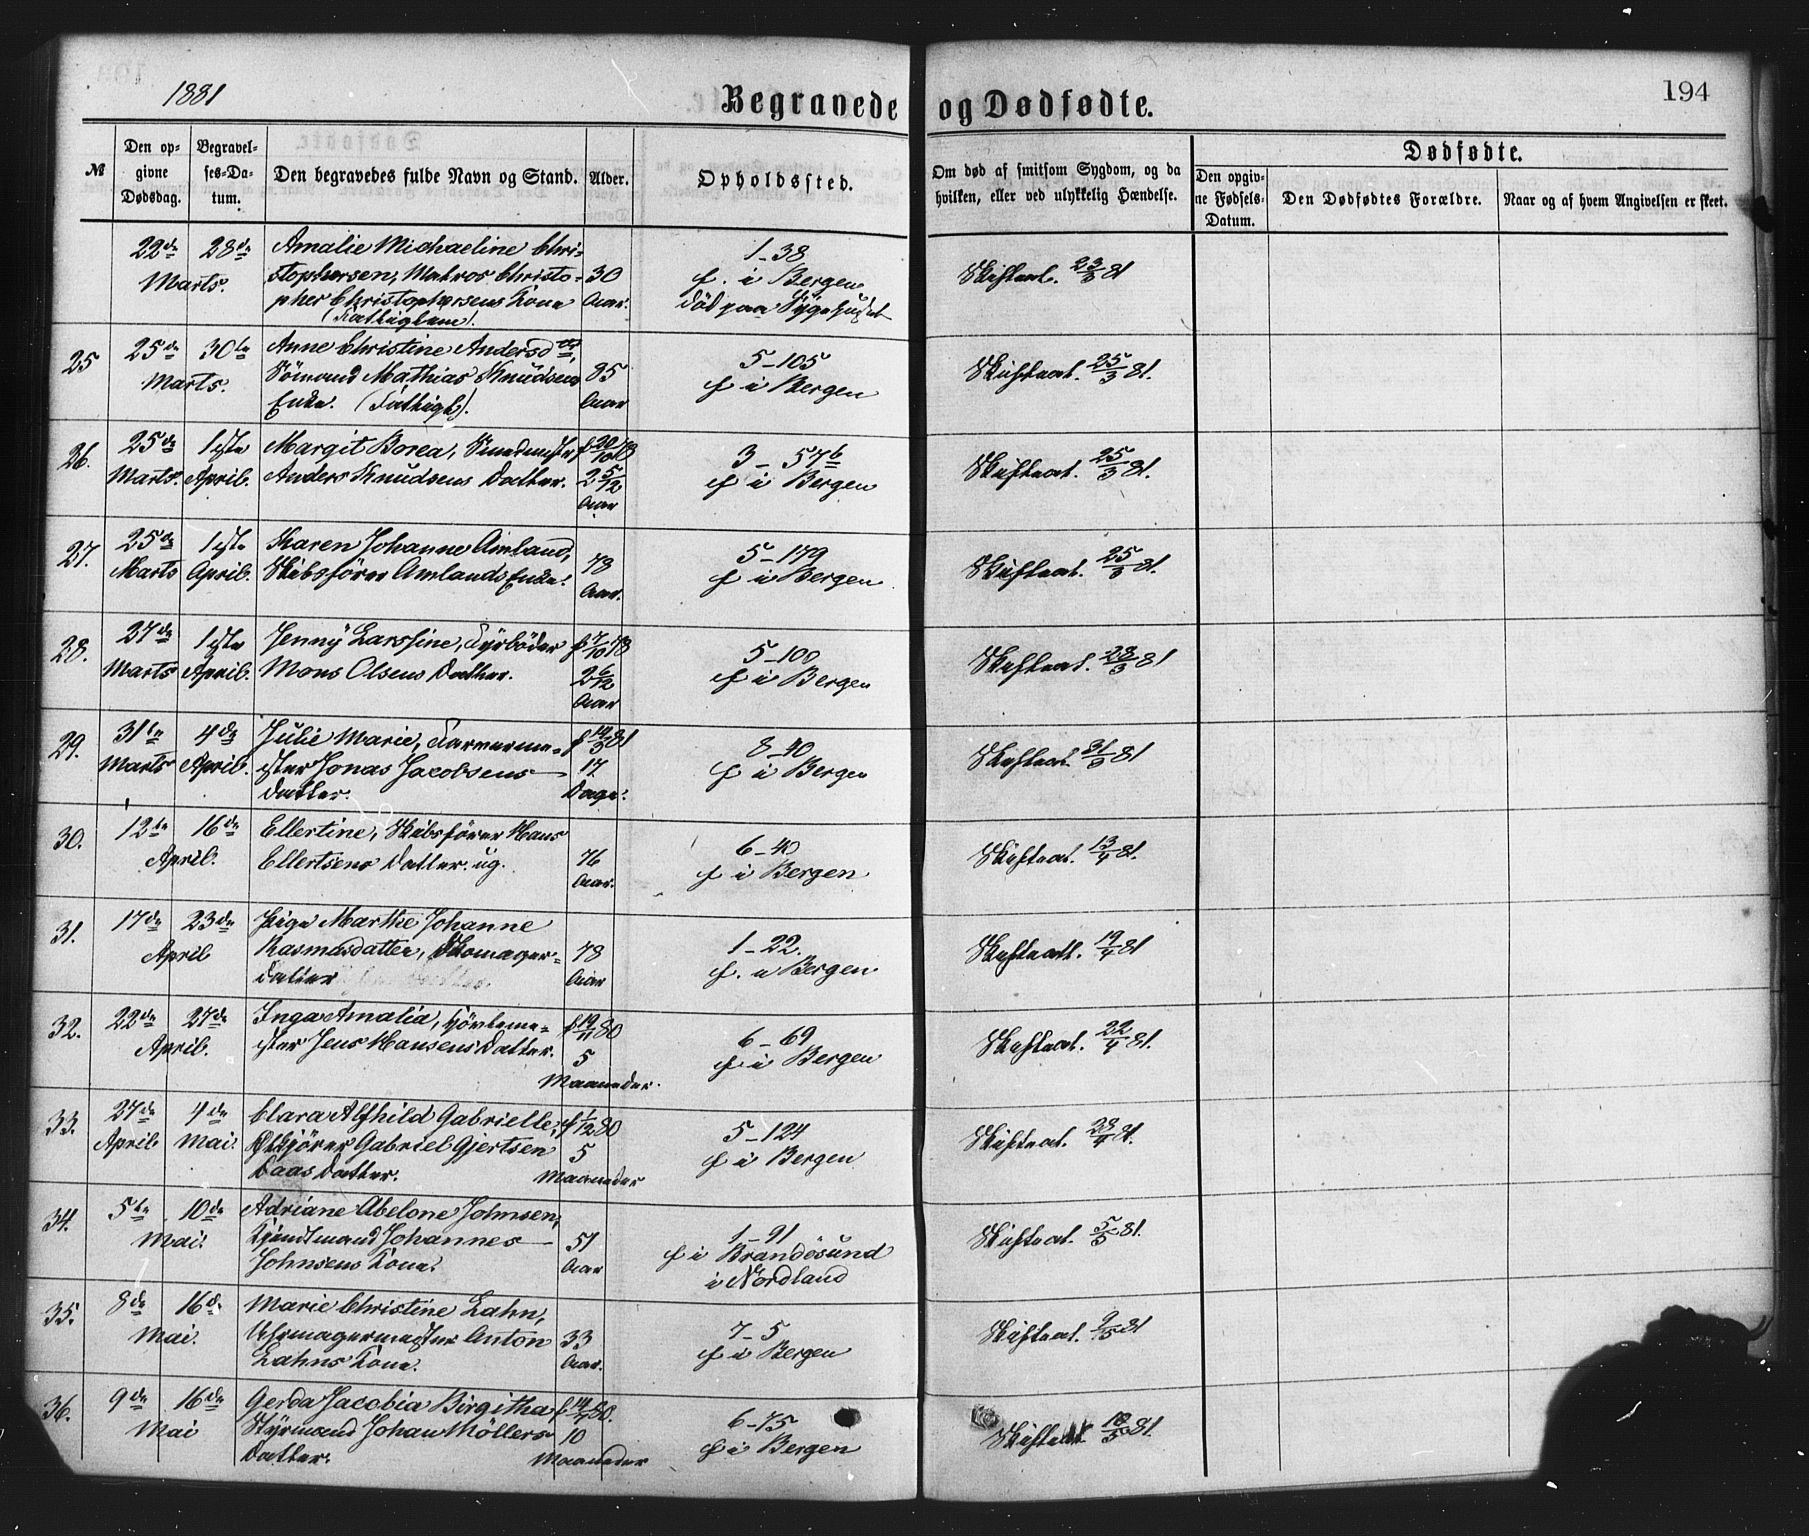 1881
Begravede og Dødfødte.
194
№
Den opgivne Dødsdag.
Begravelses-Datum.
Den begravedes fulde Navn og Stand.
Alder.
Opholdssted.
Om død af smitsom Sygdom, og da hvilken, eller ved ulykkelig Hændelse.
Dødfødte.
Den opgivne Fødsels-Datum.
Den Dødfødtes Forældre.
Naar og af hvem Angivelsen er skeet.
22de 28de Amalie Michaeline Chri- 1-38
Marts. stophersen, Matros Christo- 30 f. i Bergen Skifteat. 23/3 81
pher Christophersens Kone Aar. død paa Sygehuset
(Fattiglem).
25 25de 30te Anne Christine Andersd 5-105
Marts. Sömand Mathias Knudsens 85 f i Bergen Skifteat. 25/3 81.
Enke. (Fattigl). Aar
26. 25de 1ste Margit Borea, Smedmester f 20/10 78 3-57b
Marts. April. Anders Knudsens Datter. 2 5/12 f i Bergen Skifteat. 25/3 81.
Aar
27. 25de 1ste Karen Johanne Amland, 5-179
Marts April. Skibsförer Amlands Enke. 78 f i Bergen Skifteat. 25/3 81.
Aar.
28. 27de 1ste Jenny Larsine, Fyrböder f 7/10 78 5-100
Marts April. Mons Olsens Datter. 2 6/12 f i Bergen Skifteat. 28/3 81
Aar
29. 31te 4de Julie Marie, Farverme- f 14/3 81 8-40
Marts April. ster Jonas Jacobsens 17 f i Bergen Skifteat. 31/3 81
Datter. Dage.
30. 12te 16de Ellertine, Skibsförer Hans 6-40
April. Ellertsens Datter. ug. 76 f i Bergen Skifteat. 13/4 81.
Aar.
31. 17de 23de Pige Marthe Johanne 1-22.
April Rasmusdatter, Skomager- 78 f. i Bergen Skifteatt. 19/4 81
datter Aar
32. 22de 27de Inga Amalia, Gjörtleme- f 19/11 80 6-69
April. ster Jens Hansens Datter. 5 f i Bergen Skifteat. 22/4 81.
Maaneder.
33. 27de 4de Clara Alfhild Gabrielle, f 1/12 80 5-124
April Mai. Ölkjörer Gabriel Gjertsen 5 f i Bergen Skifteat. 28/4 81.
Daas Datter. Maaneder
34. 5te 10de Adriane Abelone Johnsen, 1-91
Mai. Kjöbmand Johannes 51 f i Brandösund Skifteat. 5/5 81.
Johnsens Kone. Aar i Nordland
35. 8de 16de Marie Christine Lahn, 7-5
Mai. Uhrmagermester Anton 33 f i Bergen Skifteat. 9/5 81
Lahns Kone. Aar.
36. 9de 16de Gerda Jacobia Birgitha f 14/7 80. 6-75
Mai Styrmand Johan Möllers 10 f i Bergen Skifteat 10/5 81.
Datter. Maaneder